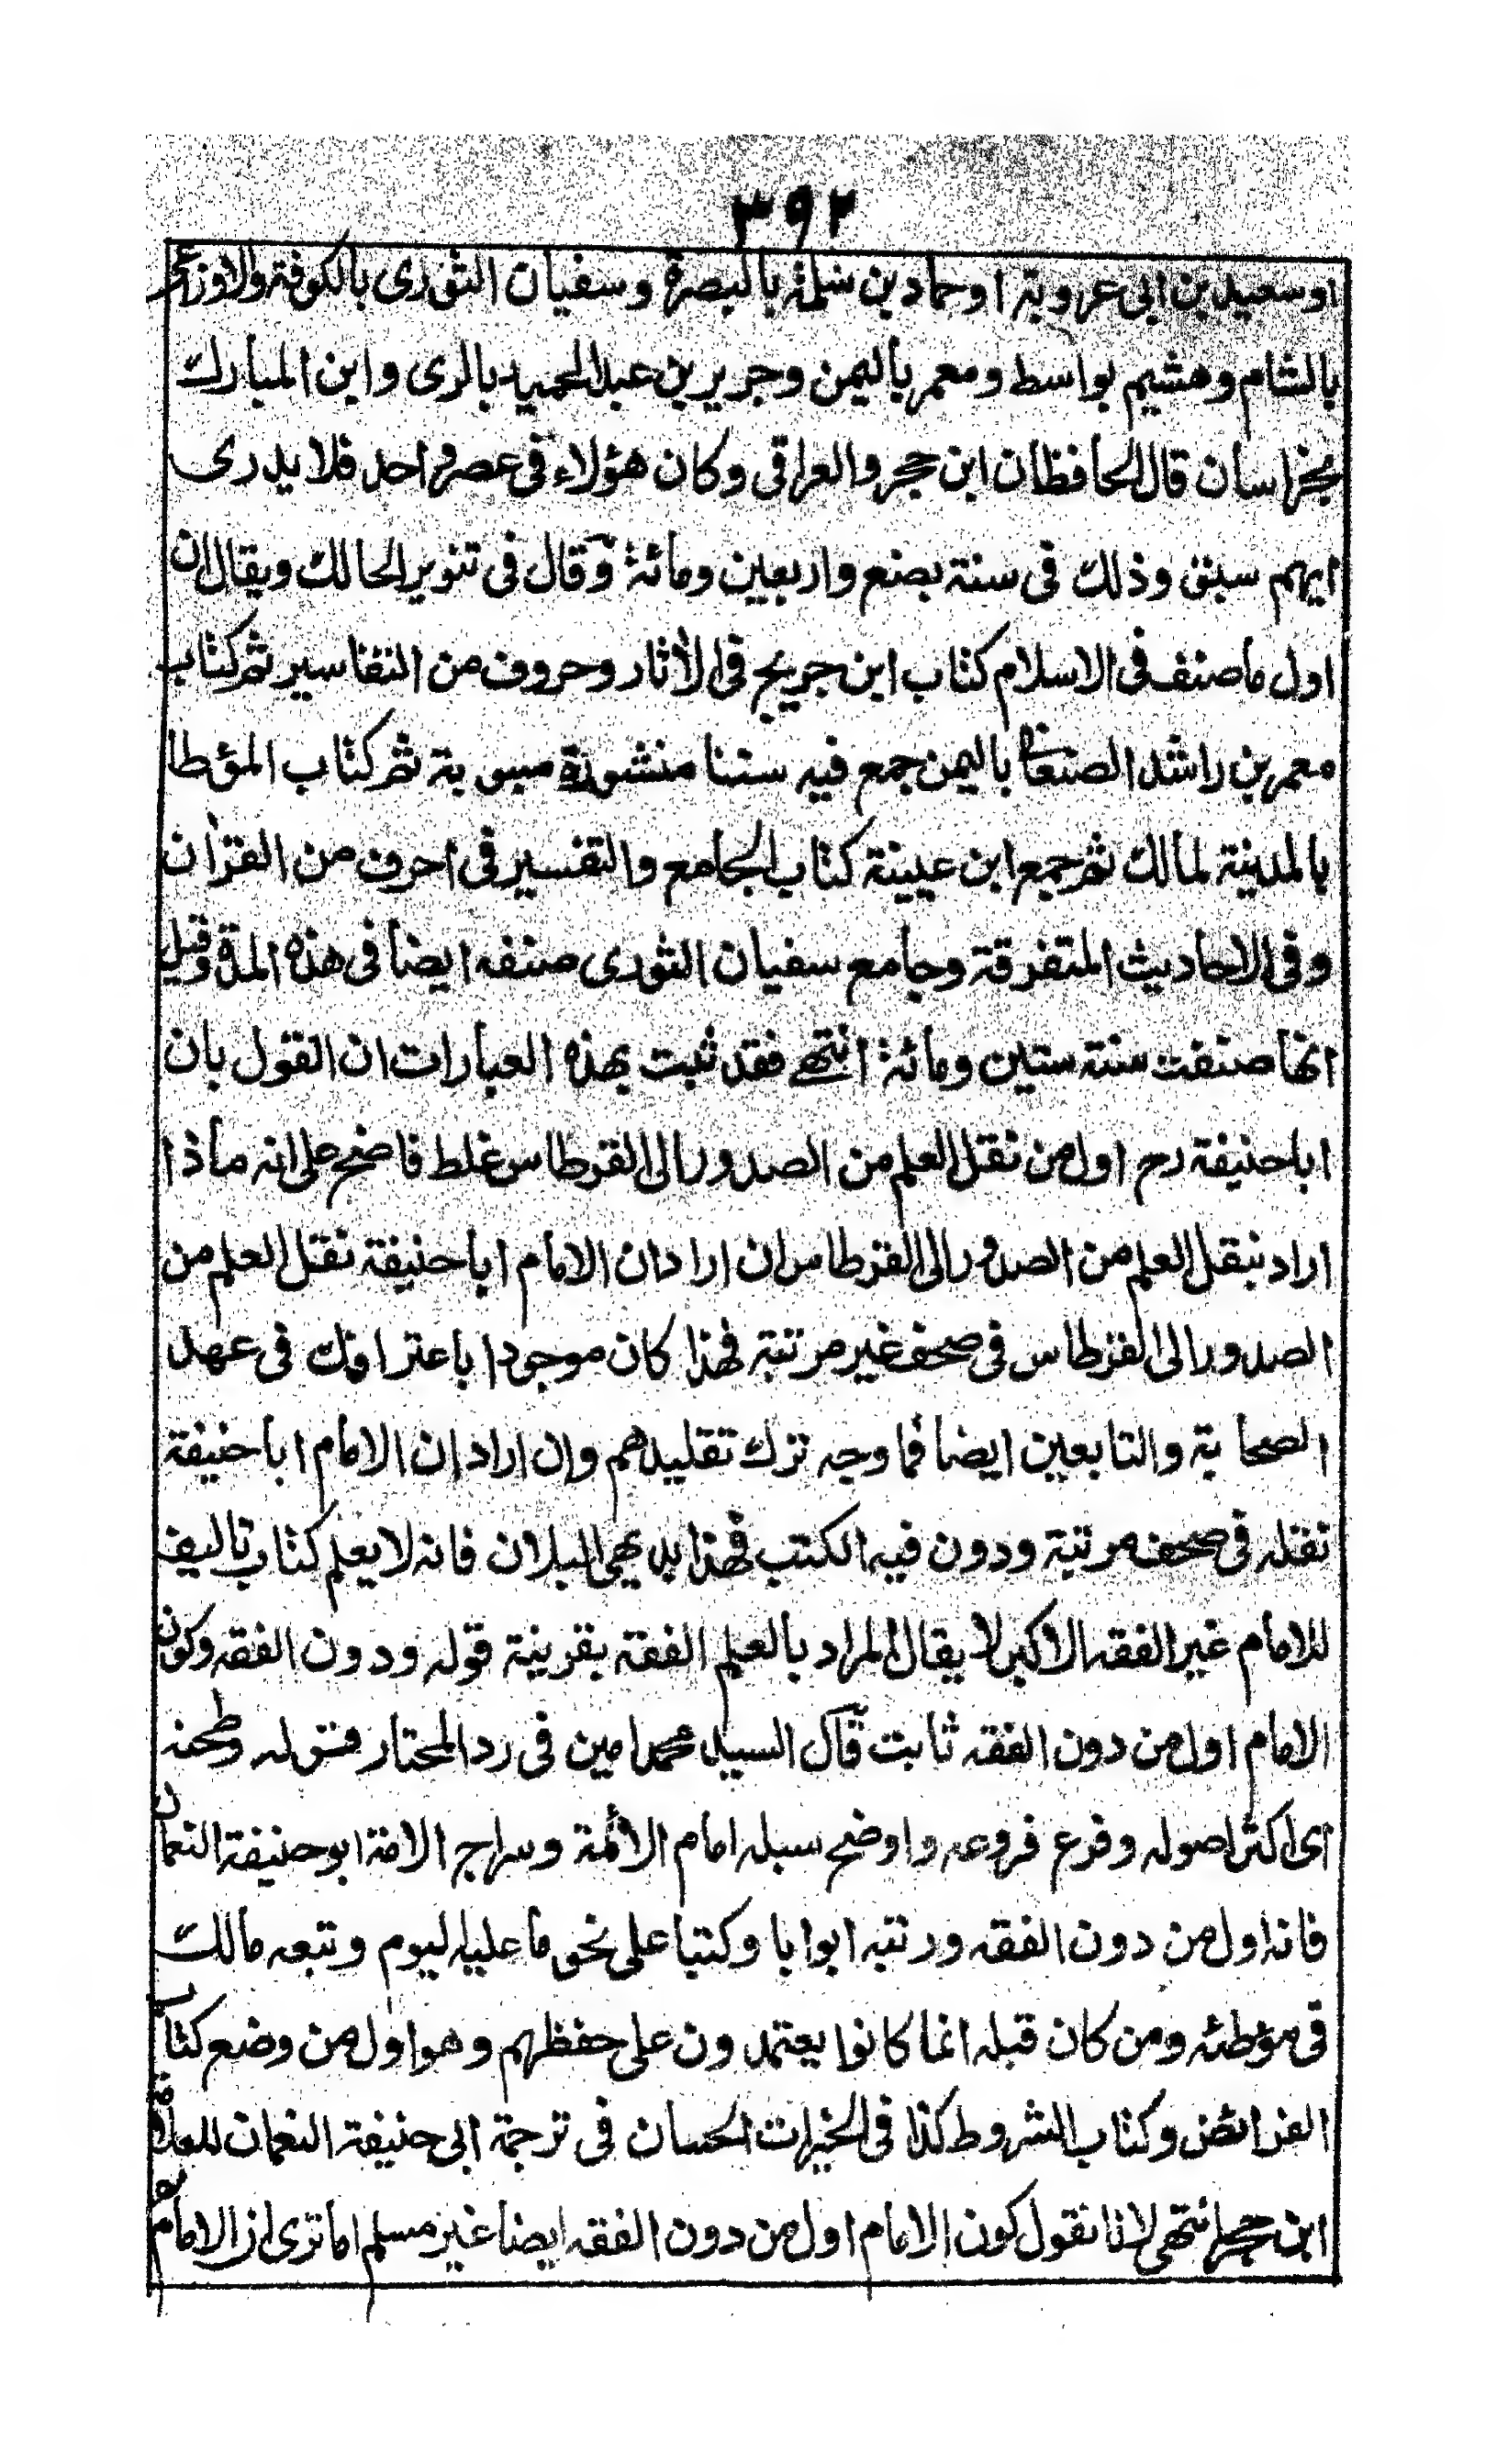 ٣٩٢
اوسعيد بن ابي عروبة اوحماد بن سلمة بالبصرة وسفيان الثوری بالكوفة والاوزاعی
بالشام وهشيم بواسط ومعمر باليمن وجرير بن عبد الحميد بالری وابن المبارك
بخراسان قال الحافظان ابن حجر والعراقی وكان هؤلاء فی عصر واحد فلا يدری
ايهم سبق وذلك فی سنة بضع واربعين ومائة وقال فی تنوير الحالك ويقال ان
اول ما صنف فی الاسلام كتاب ابن جريج فی الأثار وحروف من التفاسير ثم كتاب
معمر بن راشد الصنعانی باليمن جمع فيه سننا منشورة مبوبة ثم كتاب المؤطا
بالمدينة لمالك ثم جمع ابن عيينة كتاب الجامع والتفسير فی احرف من القرأن
وفی الاحاديث المتفرقة وجامع سفيان الثوری صنفه ايضا فی هذه المدة وقيل
انها صنفت سنة ستين ومائة انتهے فقد ثبت بهذه العبارات ان القول بان
ابا حنيفة رح اول من نقل العلم من الصدور الی القرطاس غلط فاضح علی انه ماذا
اراد بنقل العلم من الصدور الی القرطاس ان اراد ان الامام ابا حنيفة نقل العلم من
الصدور الی القرطاس فی صحف غير مرتبة فهذا كان موجودا باعترافك فی عهد
الصحابة والتابعين ايضا فما وجه ترك تقليدهم وان اراد ان الامام ابا حنيفة
نقله فی صحف مرتبة ودون فيه الكتب فهذا بديهی البطلان فانه لا يعلم كتاب تاليف
للامام غير الفقه الاكبر لا يقال المراد بالعلم الفقه بقرينة قوله ودون الفقه وكون
الامام اول من دون الفقه ثابت قال السيد محمد امين فی رد المحتار قوله وطحنه
ای اكثر اصوله وفرع فروعه واوضح سبله امام الأئمة وسراج الامة ابو حنيفة النعمان
فانه اول من دون الفقه ورتبه ابوابا وكتبا علی نحو ما عليه اليوم وتبعه مالك
فی مؤطئه ومن كان قبله انما كانوا يعتمدون علی حفظهم وهو اول من وضع كتاب
الفرائض وكتاب الشروط كذا فی الخيرات الحسان فی ترجمة ابی حنيفة النعمان للعلامة
ابن حجر انتهی لانا نقول كون الامام اول من دون الفقه ايضا غير مسلم اما تری ان الامام